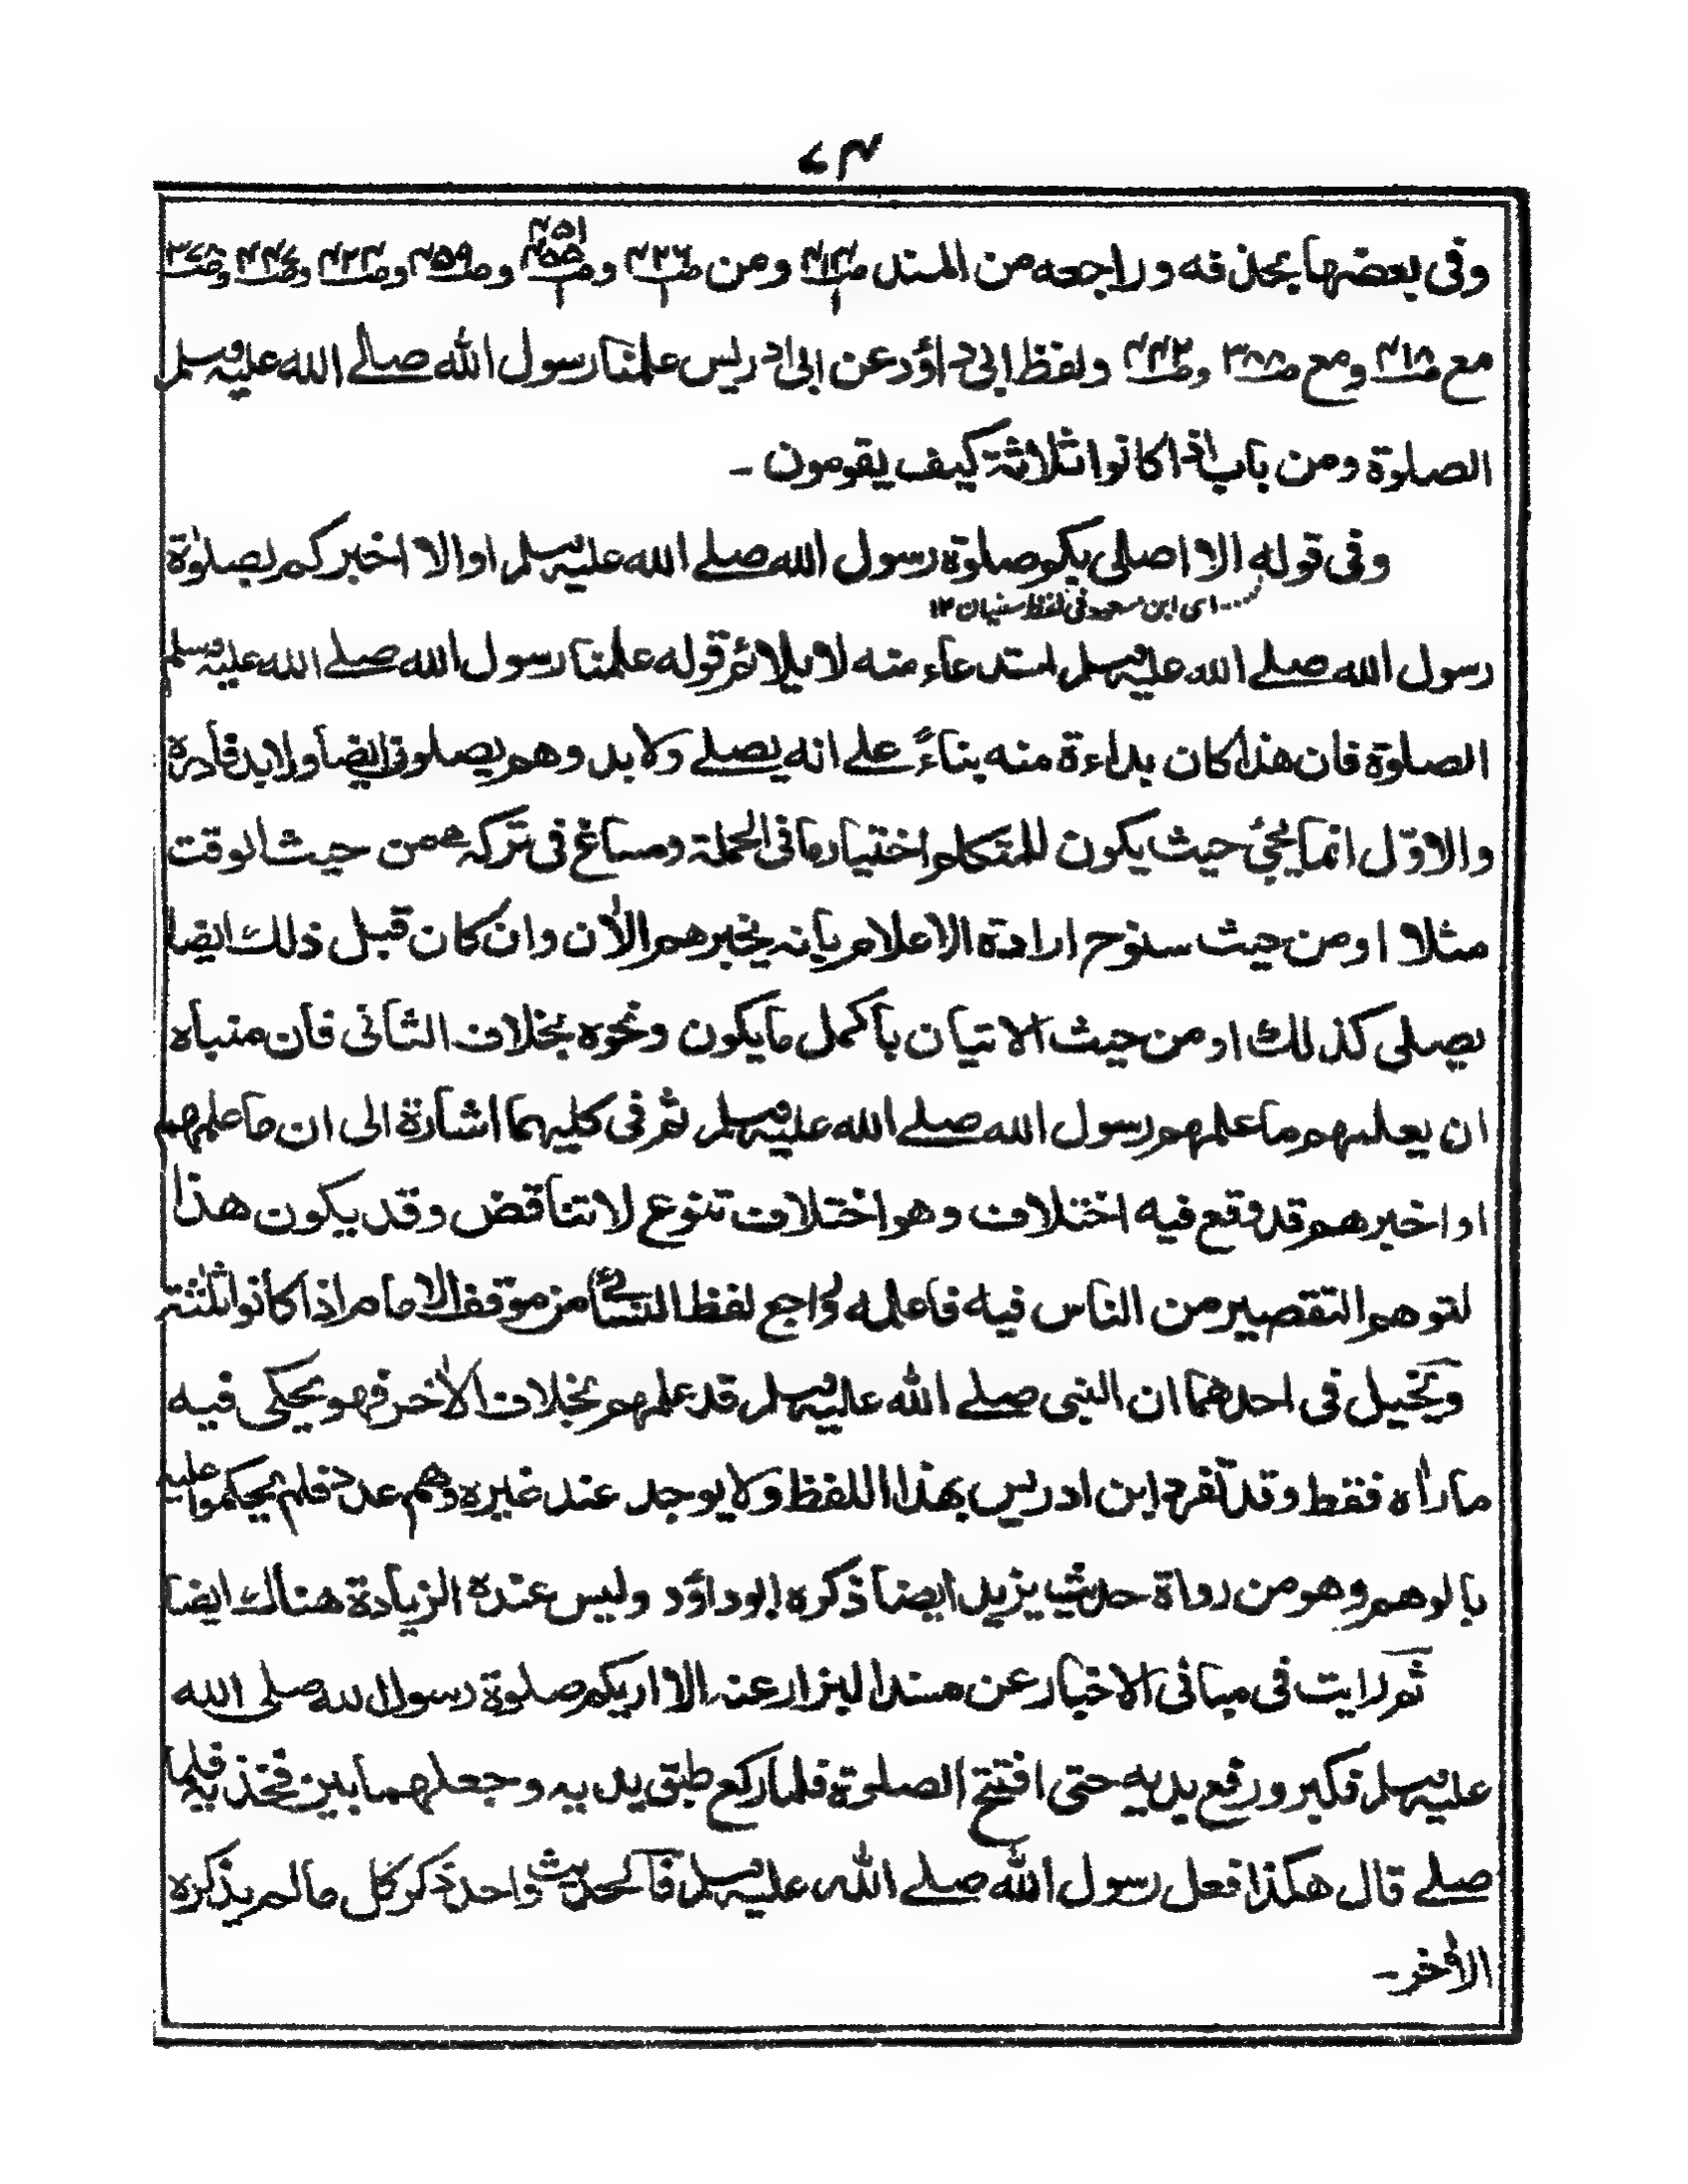 وفی بعضها بحذفه وراجعه من المسند ص۴۱۳ ومن ص۴۲۶ وص۴۵۵ ۴۵۱ وص۴۵۹ وص۴۲۳ وص۴۴۷ وص۳۷۸
مع ص۴۱۸ ومع ص۳۸۸ وص۴۴۲ ولفظ ابی داؤد عن ابن ادریس علمنا رسول الله صلے الله علیہ وسلم
الصلوة ومن باب اذا کانوا ثلاثة کیف یقومون ـ
وفی قوله الا اصلی بکم صلوة رسول الله صلے الله علیہ وسلم او الا اخبرکم بصلوٰة
ای ابن مسعود فی لفظ سفیان ۱۲
رسول الله صلے الله علیہ وسلم استدعاء منه لا یلائم قوله علمنا رسول الله صلے الله علیہ وسلم
الصلوة فان هذا کان بداءة منه بناءً علے انه یصلے ولابد وهم یصلون ایضا ولابد
والاوّل انما یجئ حیث یکون للمتکلم اختیار ما فی الجملة ومساغ فی ترکہ من حیث الوقت
مثلا او من حیث سنوح ارادة الاعلام بانہ یخبرهم الاٰن وان کان قبل ذلك ایضا
یصلی کذلك او من حیث الاتیان باکمل ما یکون ونحوه بخلاف الثانی فان مبناه
ان یعلمهم ما علمهم رسول الله صلے الله علیہ وسلم ثم فی کلیهما اشارة الی ان ما علمهم
او اخبرهم قد وقع فیه اختلاف وهو اختلاف تنوع لا تناقض وقد یکون هذا
لتوهم التقصیر من الناس فیه فاعلمه وراجع لفظ النسائی من موقف الامام اذا کانوا ثلثة
ویخیل فی احدهما ان النبی صلے الله علیہ وسلم قد علمهم بخلاف الاٰخر فهو یحکی فیه
ما راٰه فقط وقد تفرد ابن ادریس بهذا اللفظ ولا یوجد عند غیره وهم عدد فلم یحکموا علیہ
بالوهم وهو من رواة حدیث یزید ایضا ذکره ابوداؤد ولیس عنده الزیادة هناك ایضا
ثم رایت فی مبانی الاخبار عن مسند البزار عنہ الا اریکم صلوة رسول الله صلی الله
علیہ وسلم فکبر ورفع یدیه حتی افتتح الصلوة فلما رکع طبق یدیه وجعلهما بین فخذیه فلما
صلے قال هکذا فعل رسول الله صلے الله علیہ وسلم فالحدیث واحد ذکر کل مالم یذکره
الاٰخر ـ